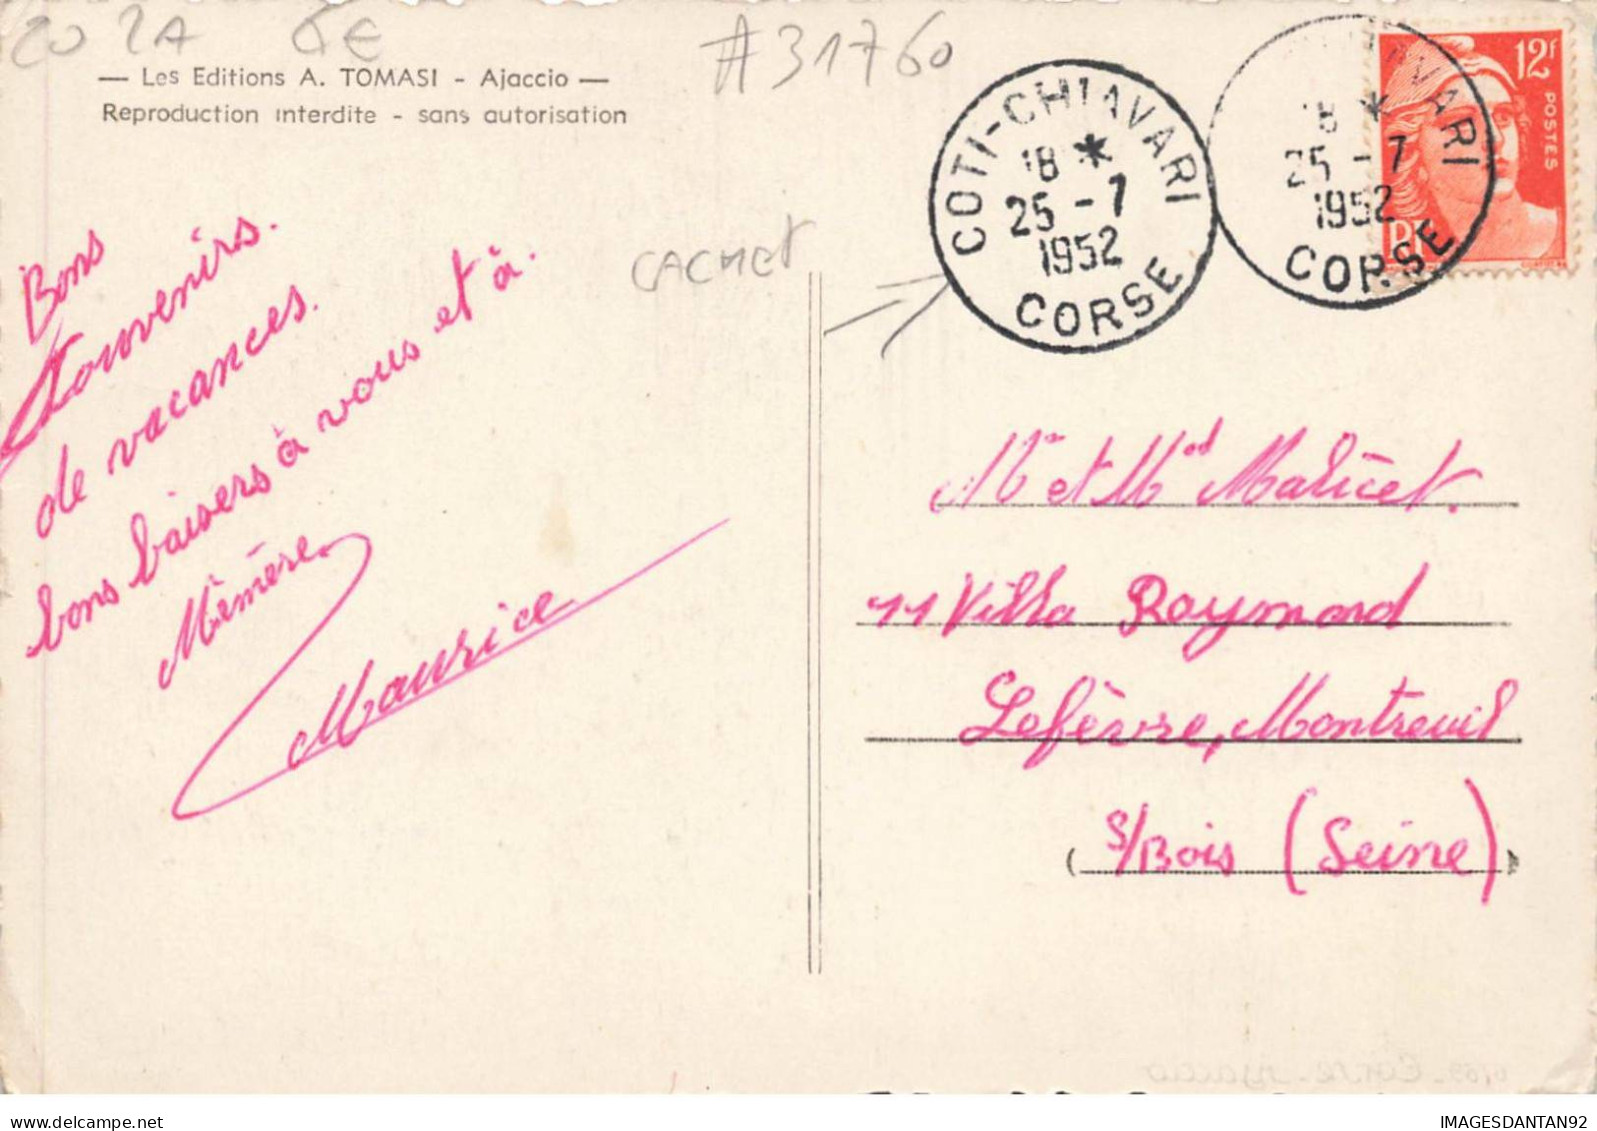 20 2A
#31760
— Les Editions A. TOMASI - Ajaccio —
Reproduction interdite - sans autorisation
CACHET
COTI-CHIAVARI
18 *
25 - 7
1952
CORSE
12F
POSTES
18 *
25 - 7
1952
CORSE
Bons
souvenirs.
de vacances.
bons baisers à vous et à.
Mémère.
Maurice
Mr et Md Malicet.
11 Villa Raymond
Lefèvre, Montreuil
s/Bois (Seine)
IMAGESDANTAN92